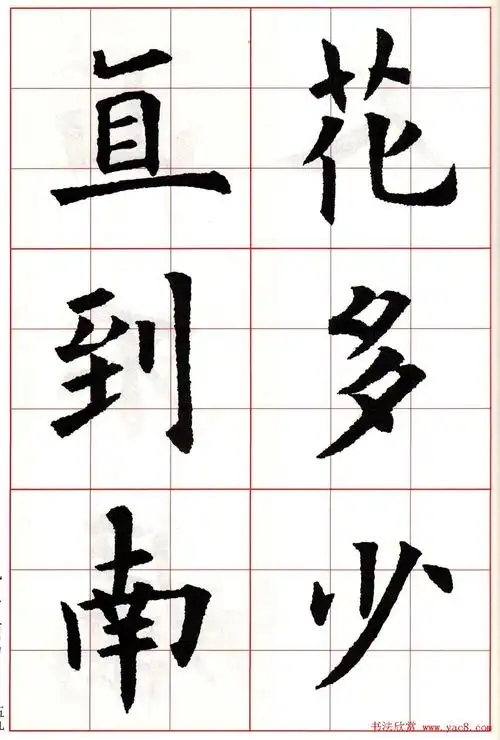 花多少
直到南
五九
书法欣赏 www.yac8.com